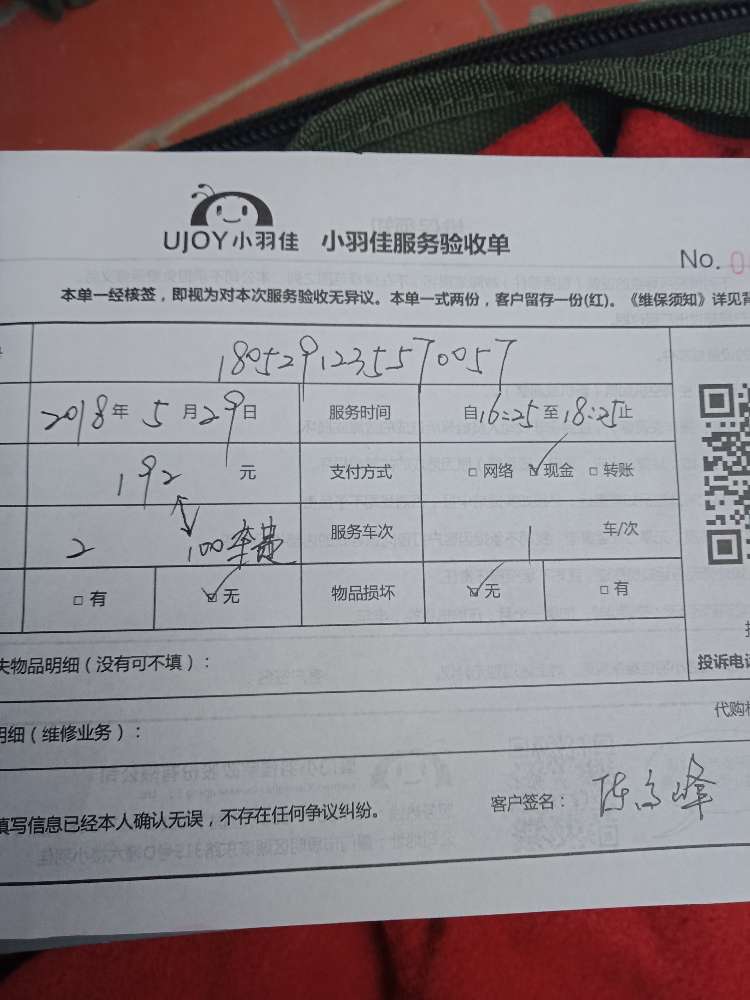 UJOY小羽佳 小羽佳服务验收单
No. 0
本单一经核签，即视为对本次服务验收无异议。本单一式两份，客户留存一份(红)。《维保须知》详见背
1805291235570057
2018年5月29日 服务时间 自16:25至18:25止
192元 支付方式 □网络 ☑现金 □转账
2 100车费 服务车次 1 车/次
□有 ☑无 物品损坏 ☑无 □有
失物品明细（没有可不填）：
投诉电话
代购材
明细（维修业务）：
填写信息已经本人确认无误，不存在任何争议纠纷。 客户签名：陈高峰